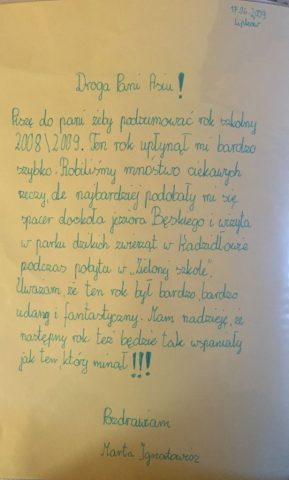 17.06.2009
Lipków
Droga Pani Asiu!
Piszę do pani żeby podsumować rok szkolny
2008\2009. Ten rok upłynął mi bardzo
szybko. Robiliśmy mnóstwo ciekawych
rzeczy, ale najbardziej podobały mi się
spacer dookoła jeziora Bęskiego i wizyta
w parku dzikich zwierząt w Kadzidłowie
podczas pobytu w „Zielonej szkole”.
Uważam, że ten rok był bardzo, bardzo
udany i fantastyczny. Mam nadzieję, że
następny rok też będzie tak wspaniały
jak ten który minął!!!
Pozdrawiam
Marta